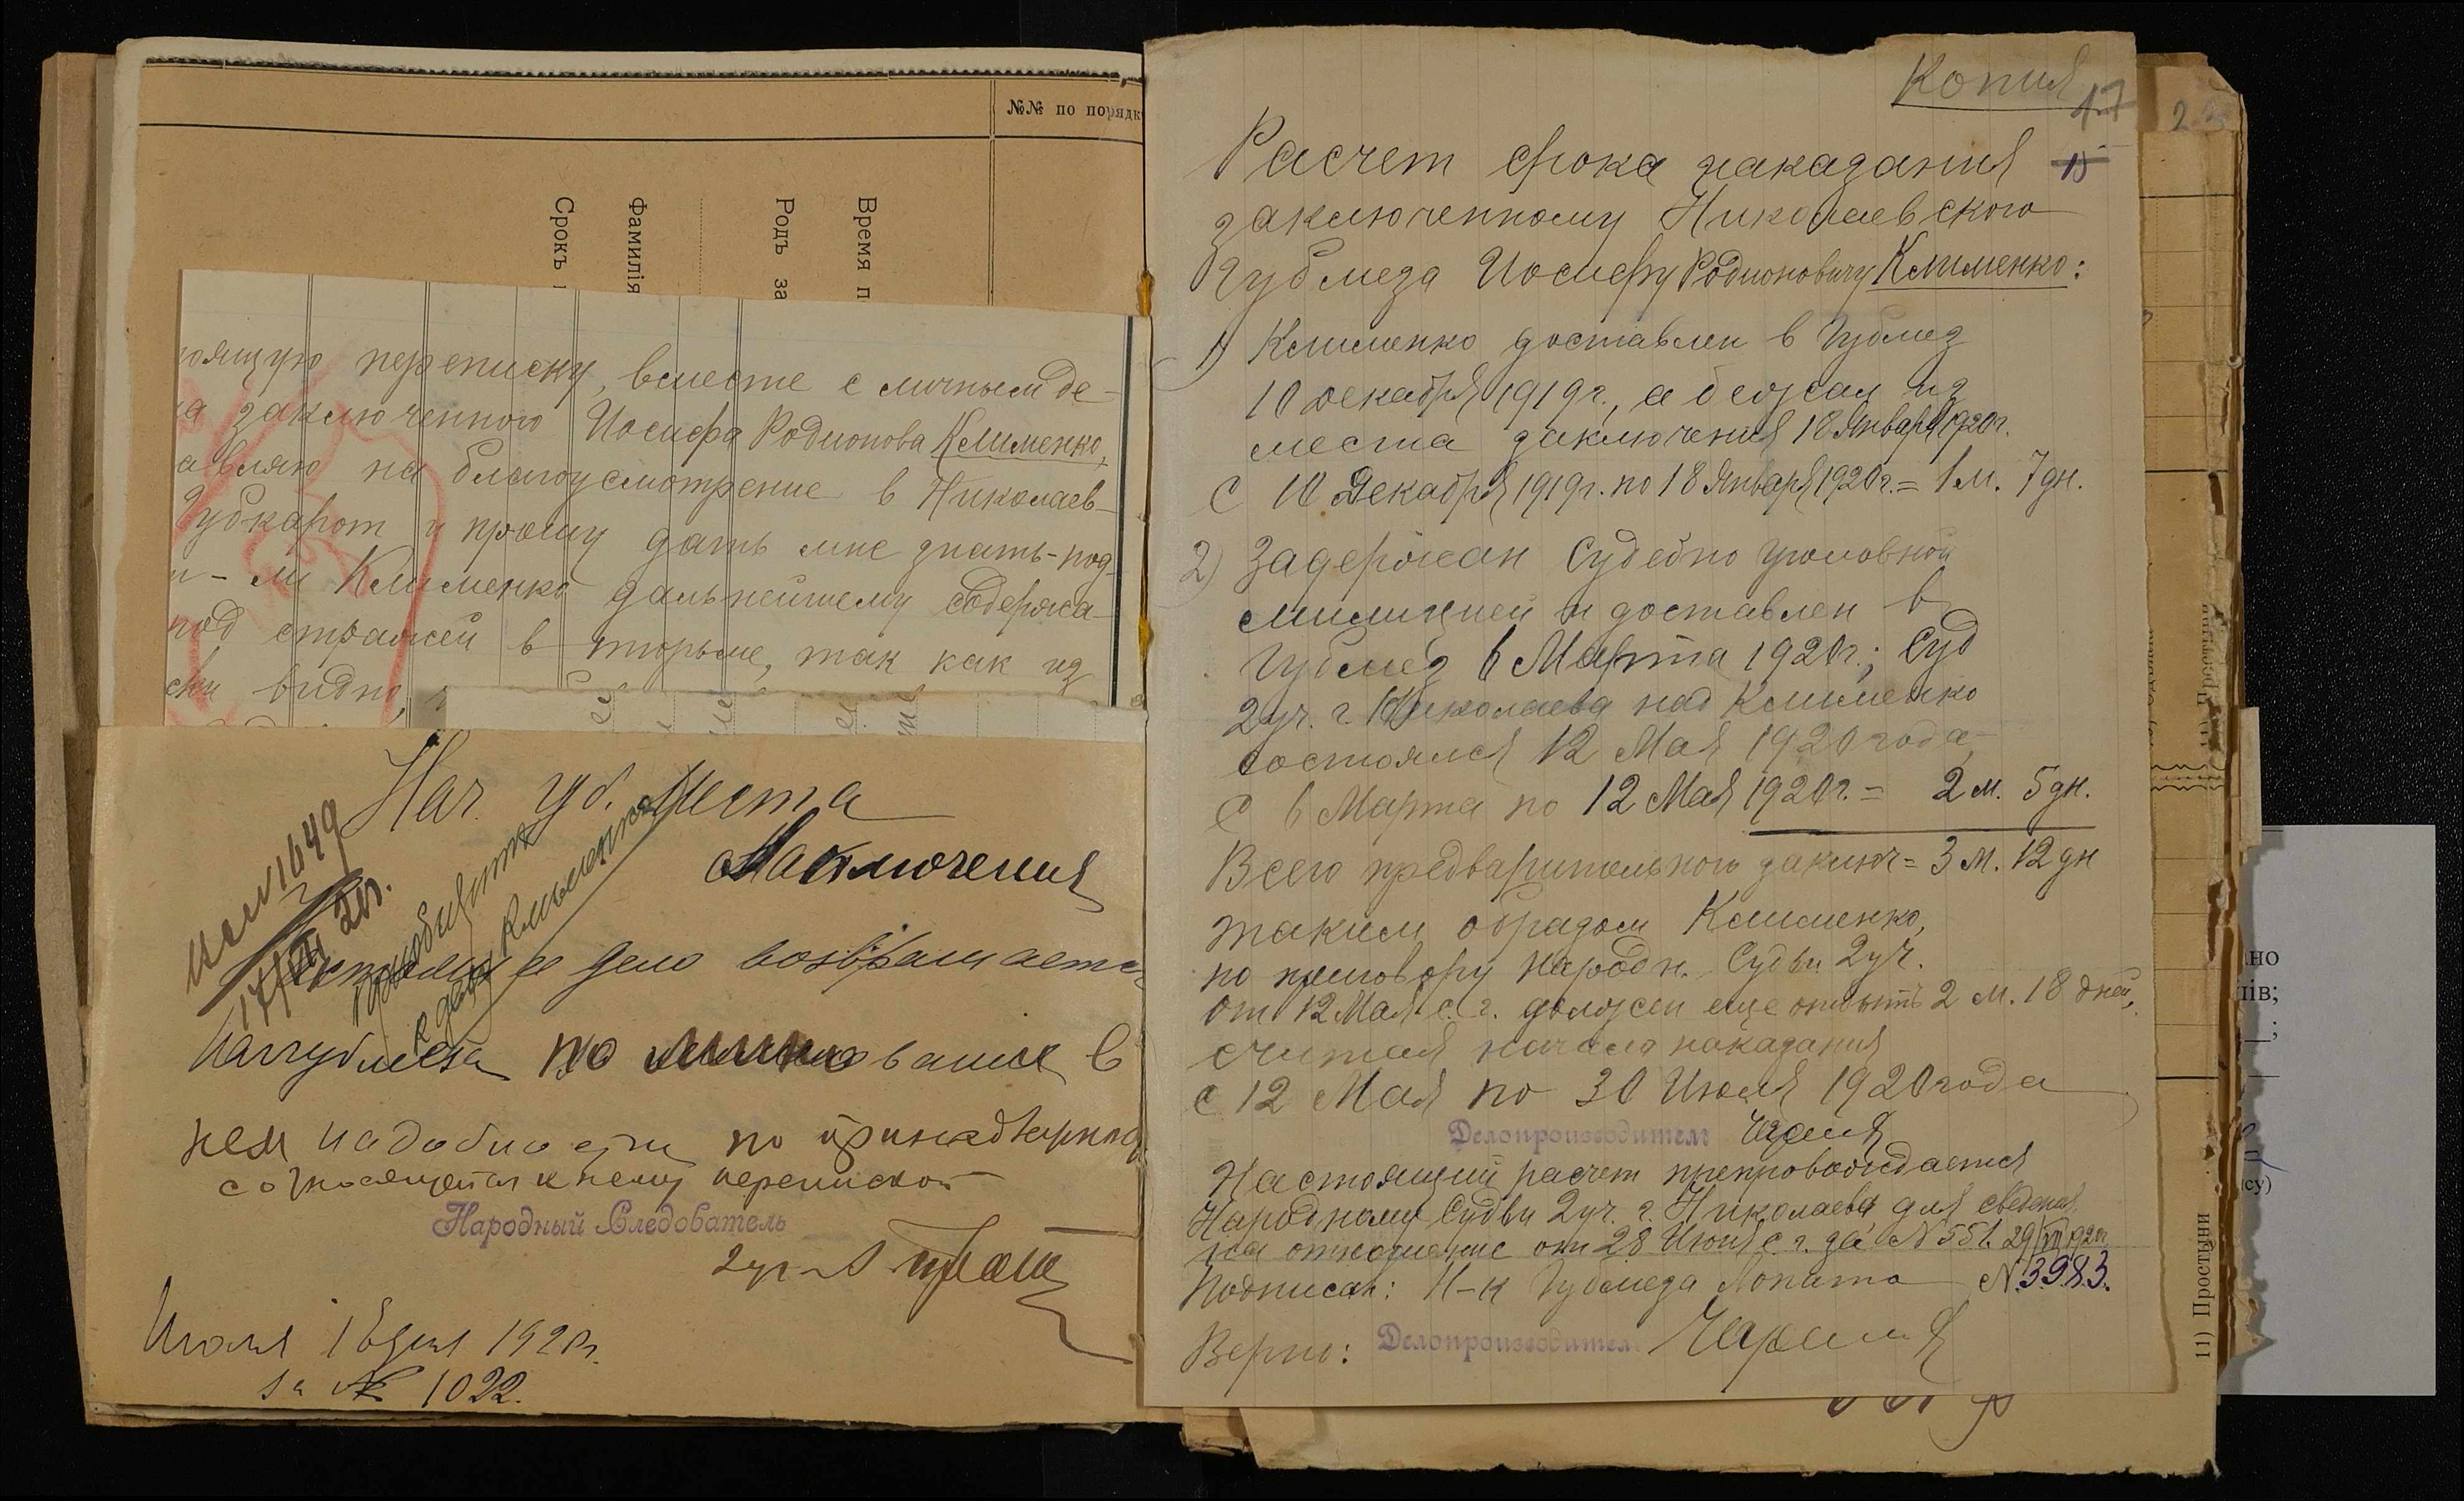 №№ по порядк
Время п
Родъ за
Фамилія
Срокъ
оящую переписку, вместе с личным де-
ла заключенного Иосифа Родионова Клименко,
авляю на благоусмотрение в Николаев-
Губкарот и прошу дать мне знать-под-
и-ли Клименко дальнейшему содержа-
под стражей в тюрьме, так как из
видно,
Нач. губ. места
Заключения
вх № 1649
17/VII 20г.
приобщить
к делу Клименко
Настоящее дело возвращается
Начгубместа по миновании в
нем надобности по принадлежно
с относящейся к нему перепиской
Народный Следователь
2 уч.
Июля 15 дня 1920г.
за № 1022.
Копия
17
15
Расчет срока наказания
заключенному Николаевского
Губмеза Иосифу Родионовичу Клименко:
1) Клименко доставлен в Губмез
10 декабря 1919г., а бежал из
места заключения 18 Января 1920г.
С 10 Декабря 1919г. по 18 Января 1920г. = 1 м. 7 дн.
2) Задержан Судебно уголовной
милицией и доставлен в
Губмез 6 Марта 1920г.; Суд
2 уч. г. Николаева над Клименко
состоялся 12 Мая 1920 года,
С 6 Марта по 12 Мая 1920г. = 2 м. 5 дн.
Всего предварительного заключ = 3 м. 12 дн
таким образом Клименко,
по приговору народн. Судьи 2 уч.
от 12 Мая с. г. должен еще отбыть 2 м. 18 дней,
считая начало наказания
с 12 Мая по 30 Июля 1920 года
Делопроизводитель
Настоящий расчет препровождается
Народному Судьи 2 уч. г. Николаева для сведения
на отношение от 28 Июня с г. за № 551. 29/VII 1920г
Подписал: Н-к Губмеза Лопата № 3983.
Верно: Делопроизводител
11) Простыни